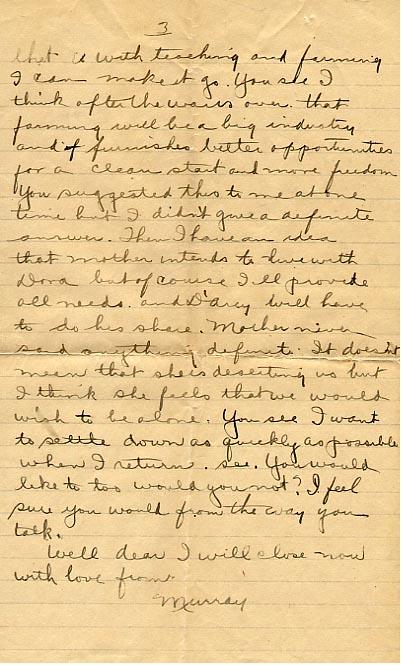 3
that is with teaching and farming
I can make it go. You see I
think after the war is over. that
farming will be a big industry
and it furnishes better opportunities
for a clean start and more freedom
You suggested this to me at one
time but I didn't give a definite
answer. Then I have an idea
that mother intends to live with
Dora but of course I'll provide
all needs. and D'Arcy will have
to do his share. Mother never
said anything definite. It doesn't
mean that she is deserting us but
I think she feels that we would
wish to be alone. You see I want
to settle down as quickly as possible
when I return. see. You would
like to too would you not? I feel
sure you would from the way you
talk.
Well dear I will close now
with love from
Murray